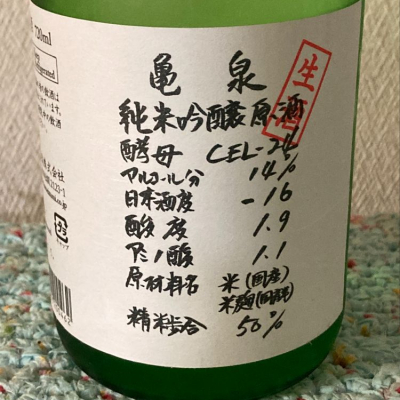 720ml
亀泉
生酒
純米吟醸原酒
酵母 CEL-24
アルコール分 14%
日本酒度 -16
酸度 1.9
アミノ酸 1.1
原材料名 米(国産)
米麹(国産米)
精米歩合 50%